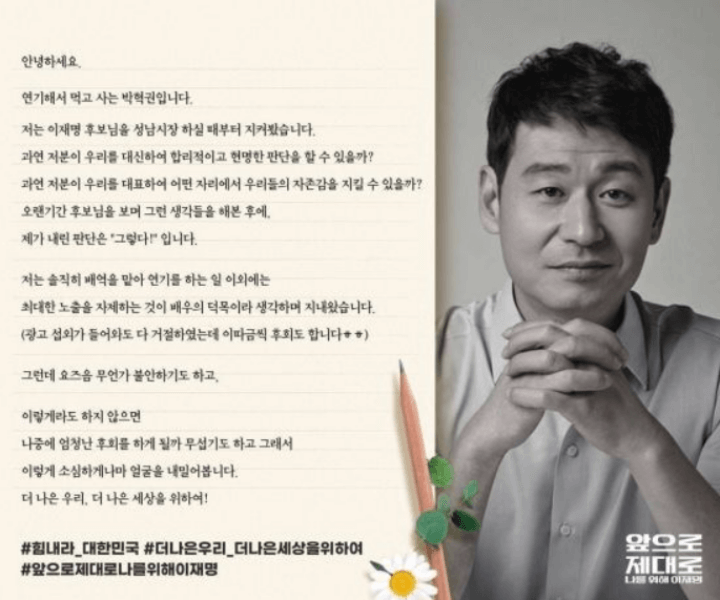 안녕하세요.
연기해서 먹고 사는 박혁권입니다.
저는 이재명 후보님을 성남시장 하실 때부터 지켜봤습니다.
과연 저분이 우리를 대신하여 합리적이고 현명한 판단을 할 수 있을까?
과연 저분이 우리를 대표하여 어떤 자리에서 우리들의 자존감을 지킬 수 있을까?
오랜기간 후보님을 보며 그런 생각들을 해본 후에,
제가 내린 판단은 "그렇다!" 입니다.
저는 솔직히 배역을 맡아 연기를 하는 일 이외에는
최대한 노출을 자제하는 것이 배우의 덕목이라 생각하며 지내왔습니다.
(광고 섭외가 들어와도 다 거절하였는데 이따금씩 후회도 합니다ㅎㅎ)
그런데 요즈음 무언가 불안하기도 하고,
이렇게라도 하지 않으면
나중에 엄청난 후회를 하게 될까 무섭기도 하고 그래서
이렇게 소심하게나마 얼굴을 내밀어봅니다.
더 나은 우리, 더 나은 세상을 위하여!
#힘내라_대한민국 #더나은우리_더나은세상을위하여
#앞으로제대로나를위해이재명
앞으로
제대로
나를 위해 이재명